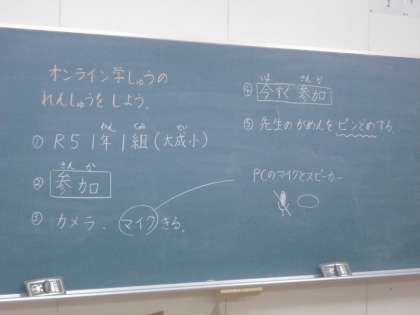 オンライン学しゅうの
れんしゅうをしよう。
① R5 1年1組(大成小)
② 参加
③ カメラ、マイクきる。
④ 今すぐ参加
⑤ 先生のがめんをピンどめする。
PCのマイクとスピーカー